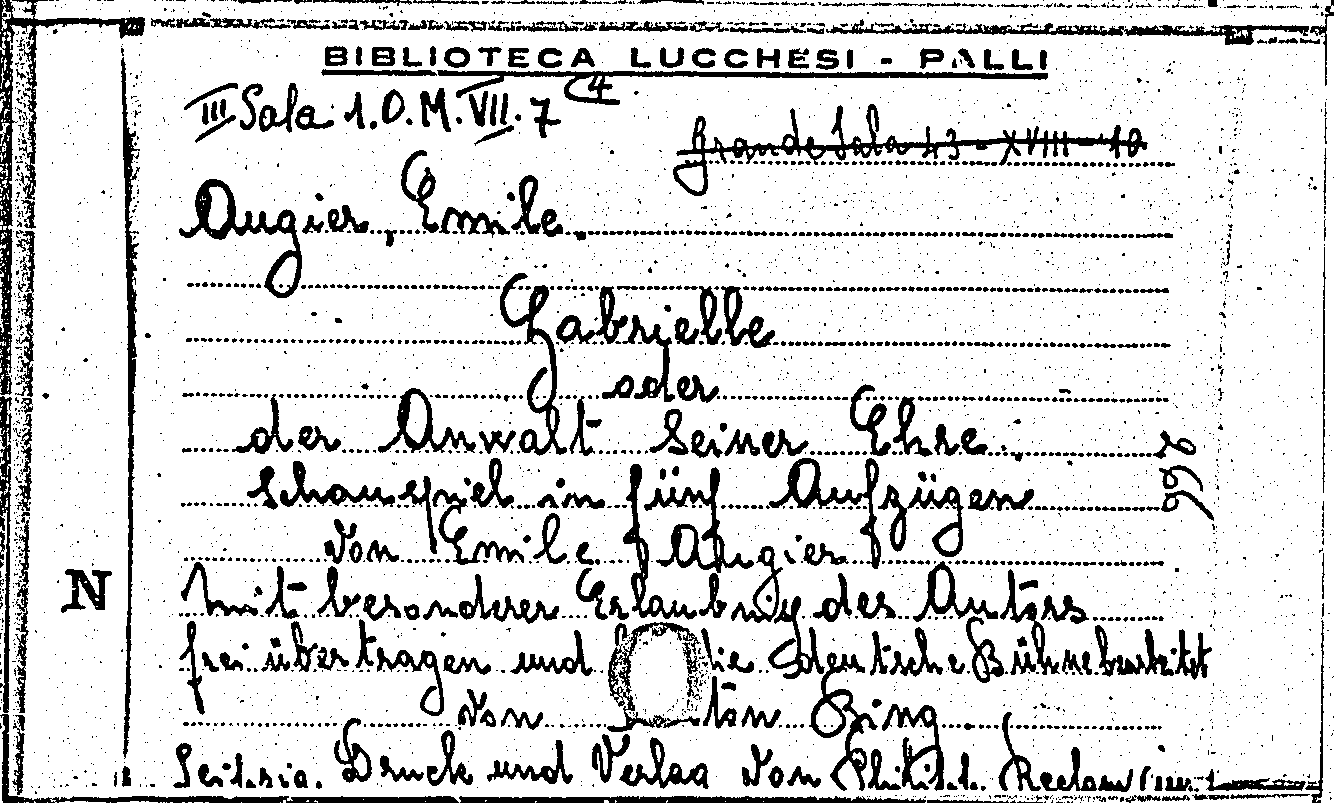 BIBLIOTECA LUCCHESI - PALLI
III Sala 1.O.M.VII.7 4
Grande Sala 43 - XVIII - 10
Augier, Emile.
Gabrielle
oder
der Anwalt seiner Ehre.
Schauspiel in fünf Aufzügen
von Emile Augier
Mit besonderer Erlaubniß des Autors
frei übertragen und die deutsche Bühne bearbeitet
von Bing.
N
Druck und Verlag von Reclam